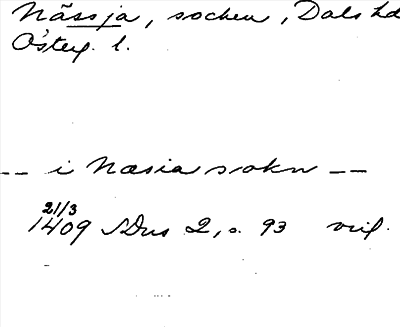 Nässja, socken, Dals hd
Österg. l.
-- i Næsia sokn --
21/3
1409 SDns 2, s. 93 vid.